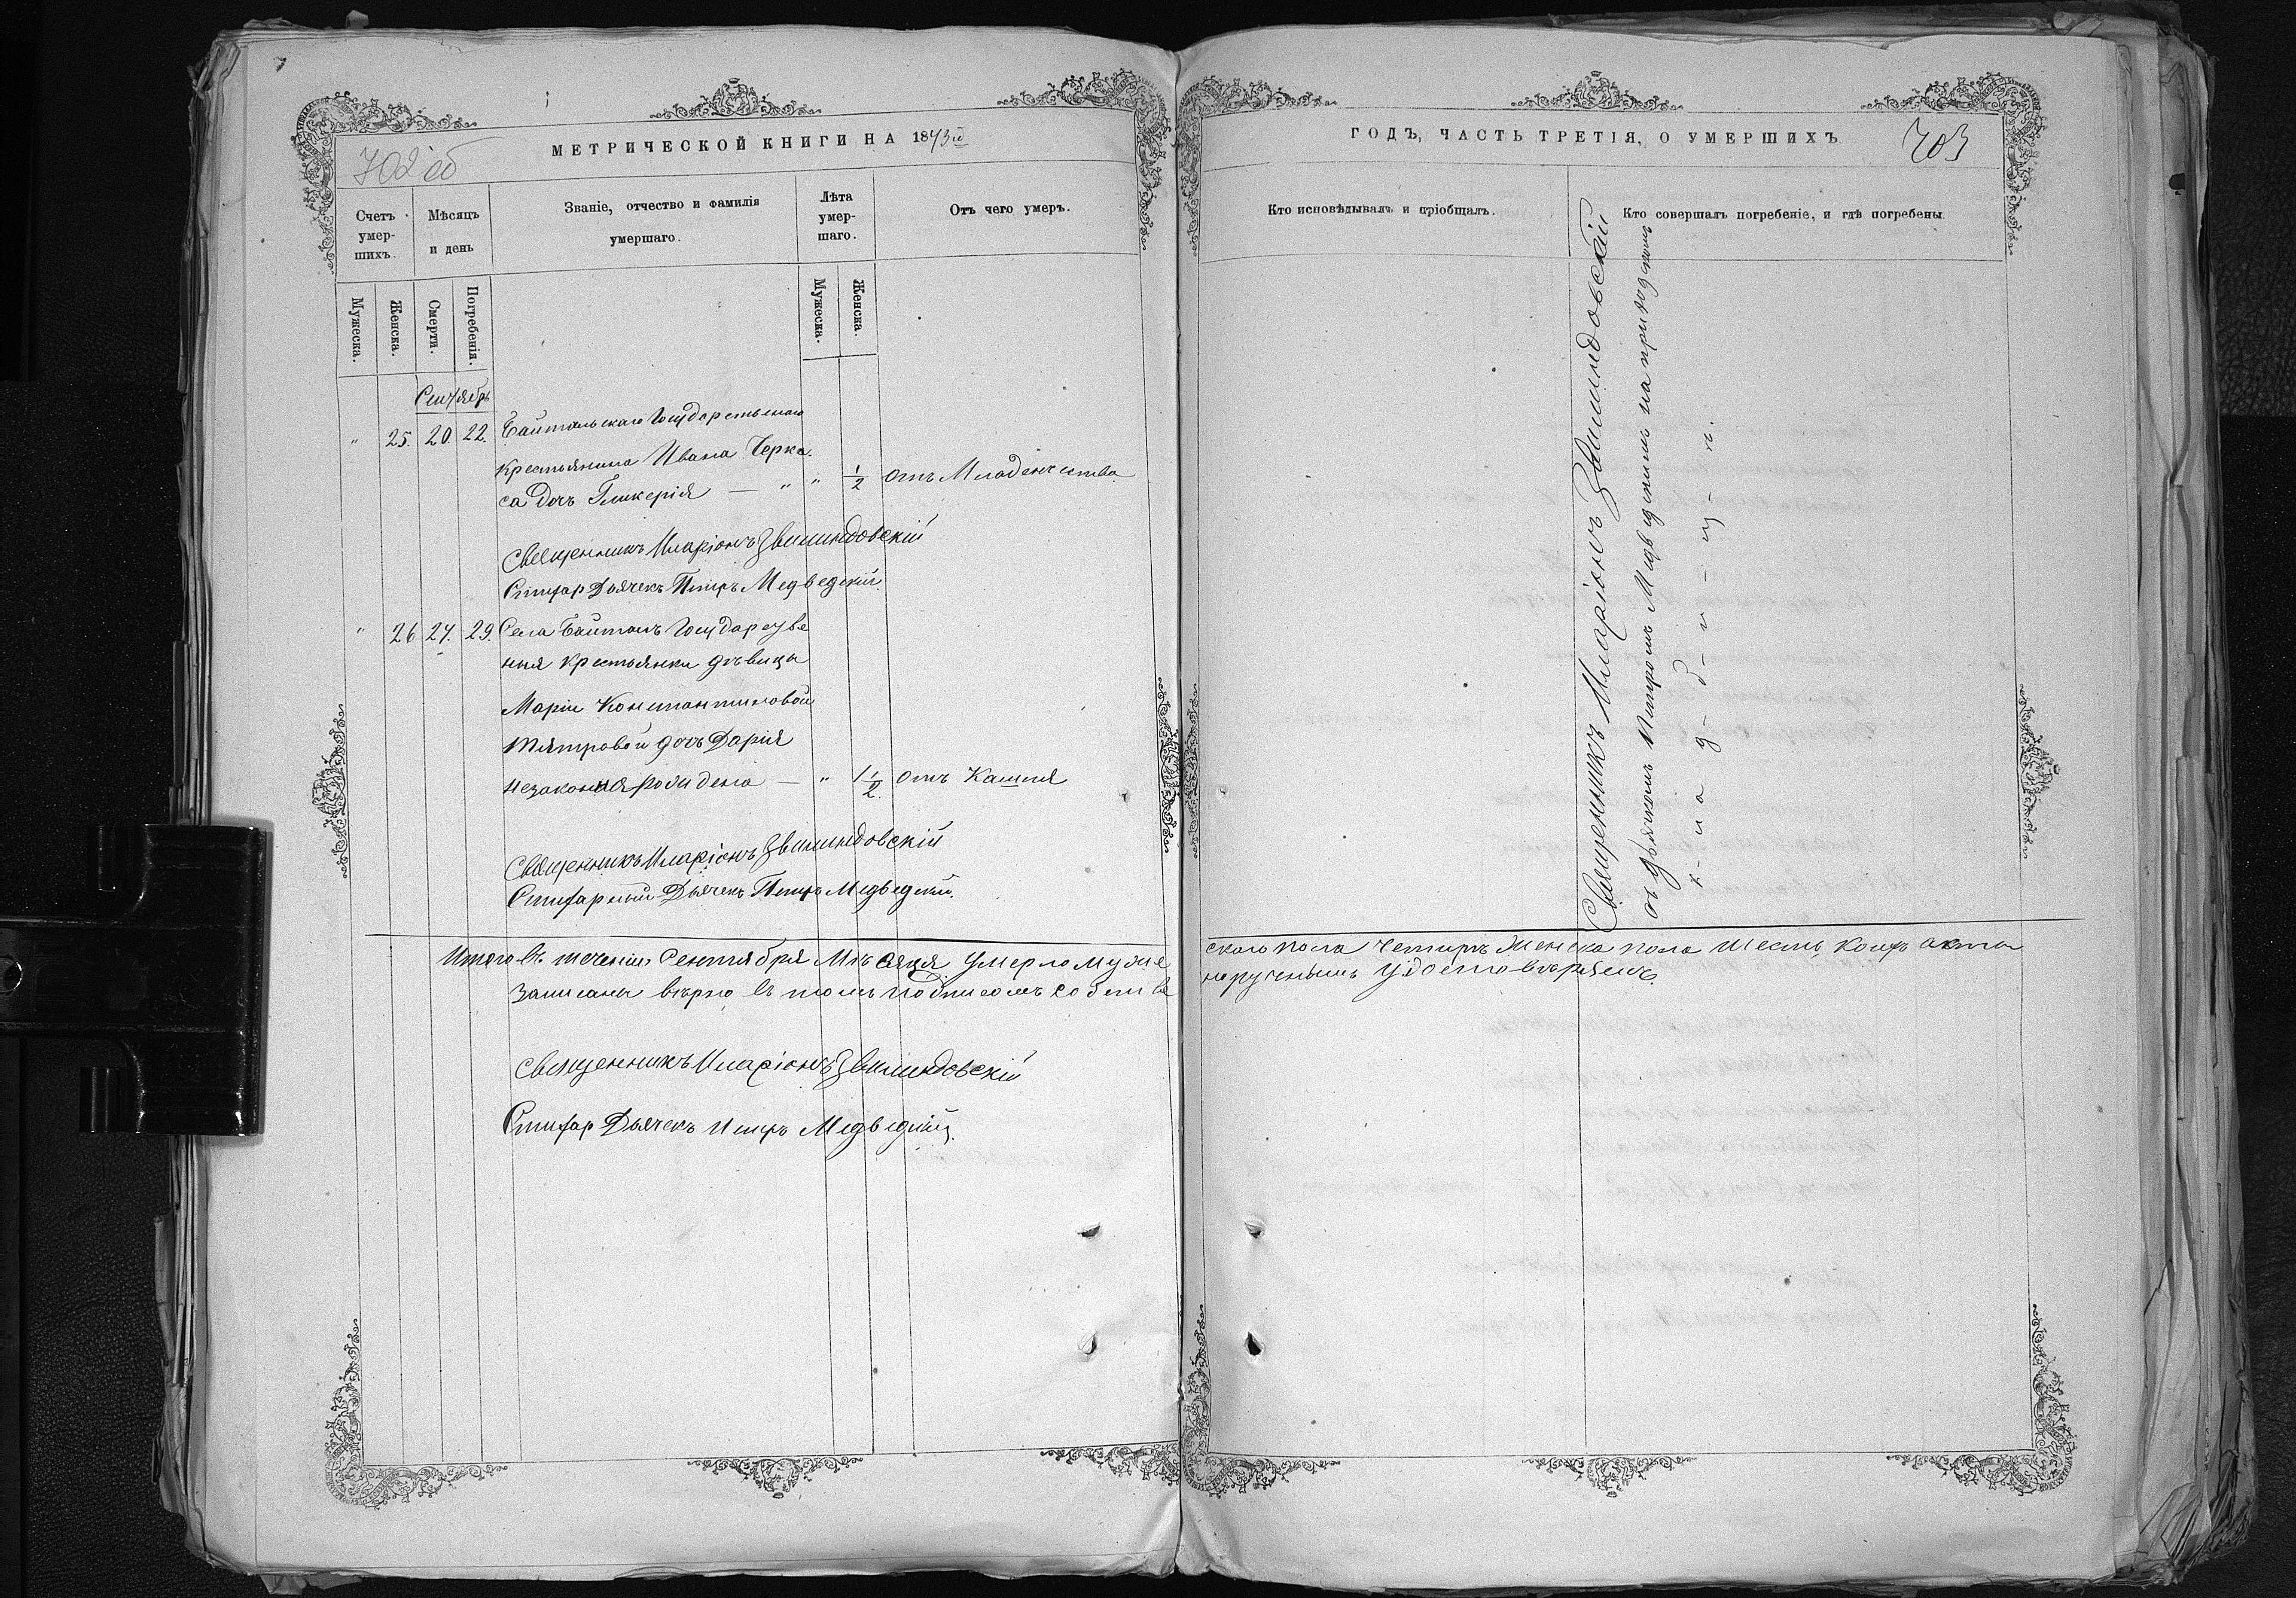 702 об
МЕТРИЧЕСКОЙ КНИГИ НА 1873й
Счетъ умер-шихъ.
Мѣсяцъ и день
Званіе, отчество и фамилія умершаго.
Лѣта умер-шаго.
Отъ чего умеръ.
Мужеска.
Женска.
Смерти.
Погребенія.
Мужеска.
Женска.
Сентябрь
" 25. 20. 22. Байтальскаго Государственаго
крестьянина Ивана Черка
са дочь Гликерія — " " 1/2 отъ Младенчества
Священникъ Иларіонъ
Стихар Дьячекъ Петръ Медведскій
" 26 27. 29. Села Байталъ Государстве
ныя крестьянки дѣвицы
Маріи Константиновой
дочь Дарія
незаконнорождена — " 1 1/2 отъ Кашля
Священникъ Иларіонъ
Стихарный Дьячекъ Петръ Медведскій.
Итого въ теченіи Сентября Мѣсяця умерло муже
записаны вѣрно въ томъ подписомъ собстве
Священникъ Иларіонъ
Стихар Дьячекъ Петръ Медведскій.
ГОДЪ, ЧАСТЬ ТРЕТІЯ, О УМЕРШИХЪ
703
Кто исповѣдывалъ и пріобщалъ.
Кто совершалъ погребеніе, и гдѣ погребены
Священникъ Иларіонъ
съ дьячкомъ Петромъ Медведскимъ на приходскомъ
к-ла д-б-и-щ-ѣ.
скаго пола Четыре Женска пола Шесть, коихъ акты
норучнымъ удостовѣряемъ.